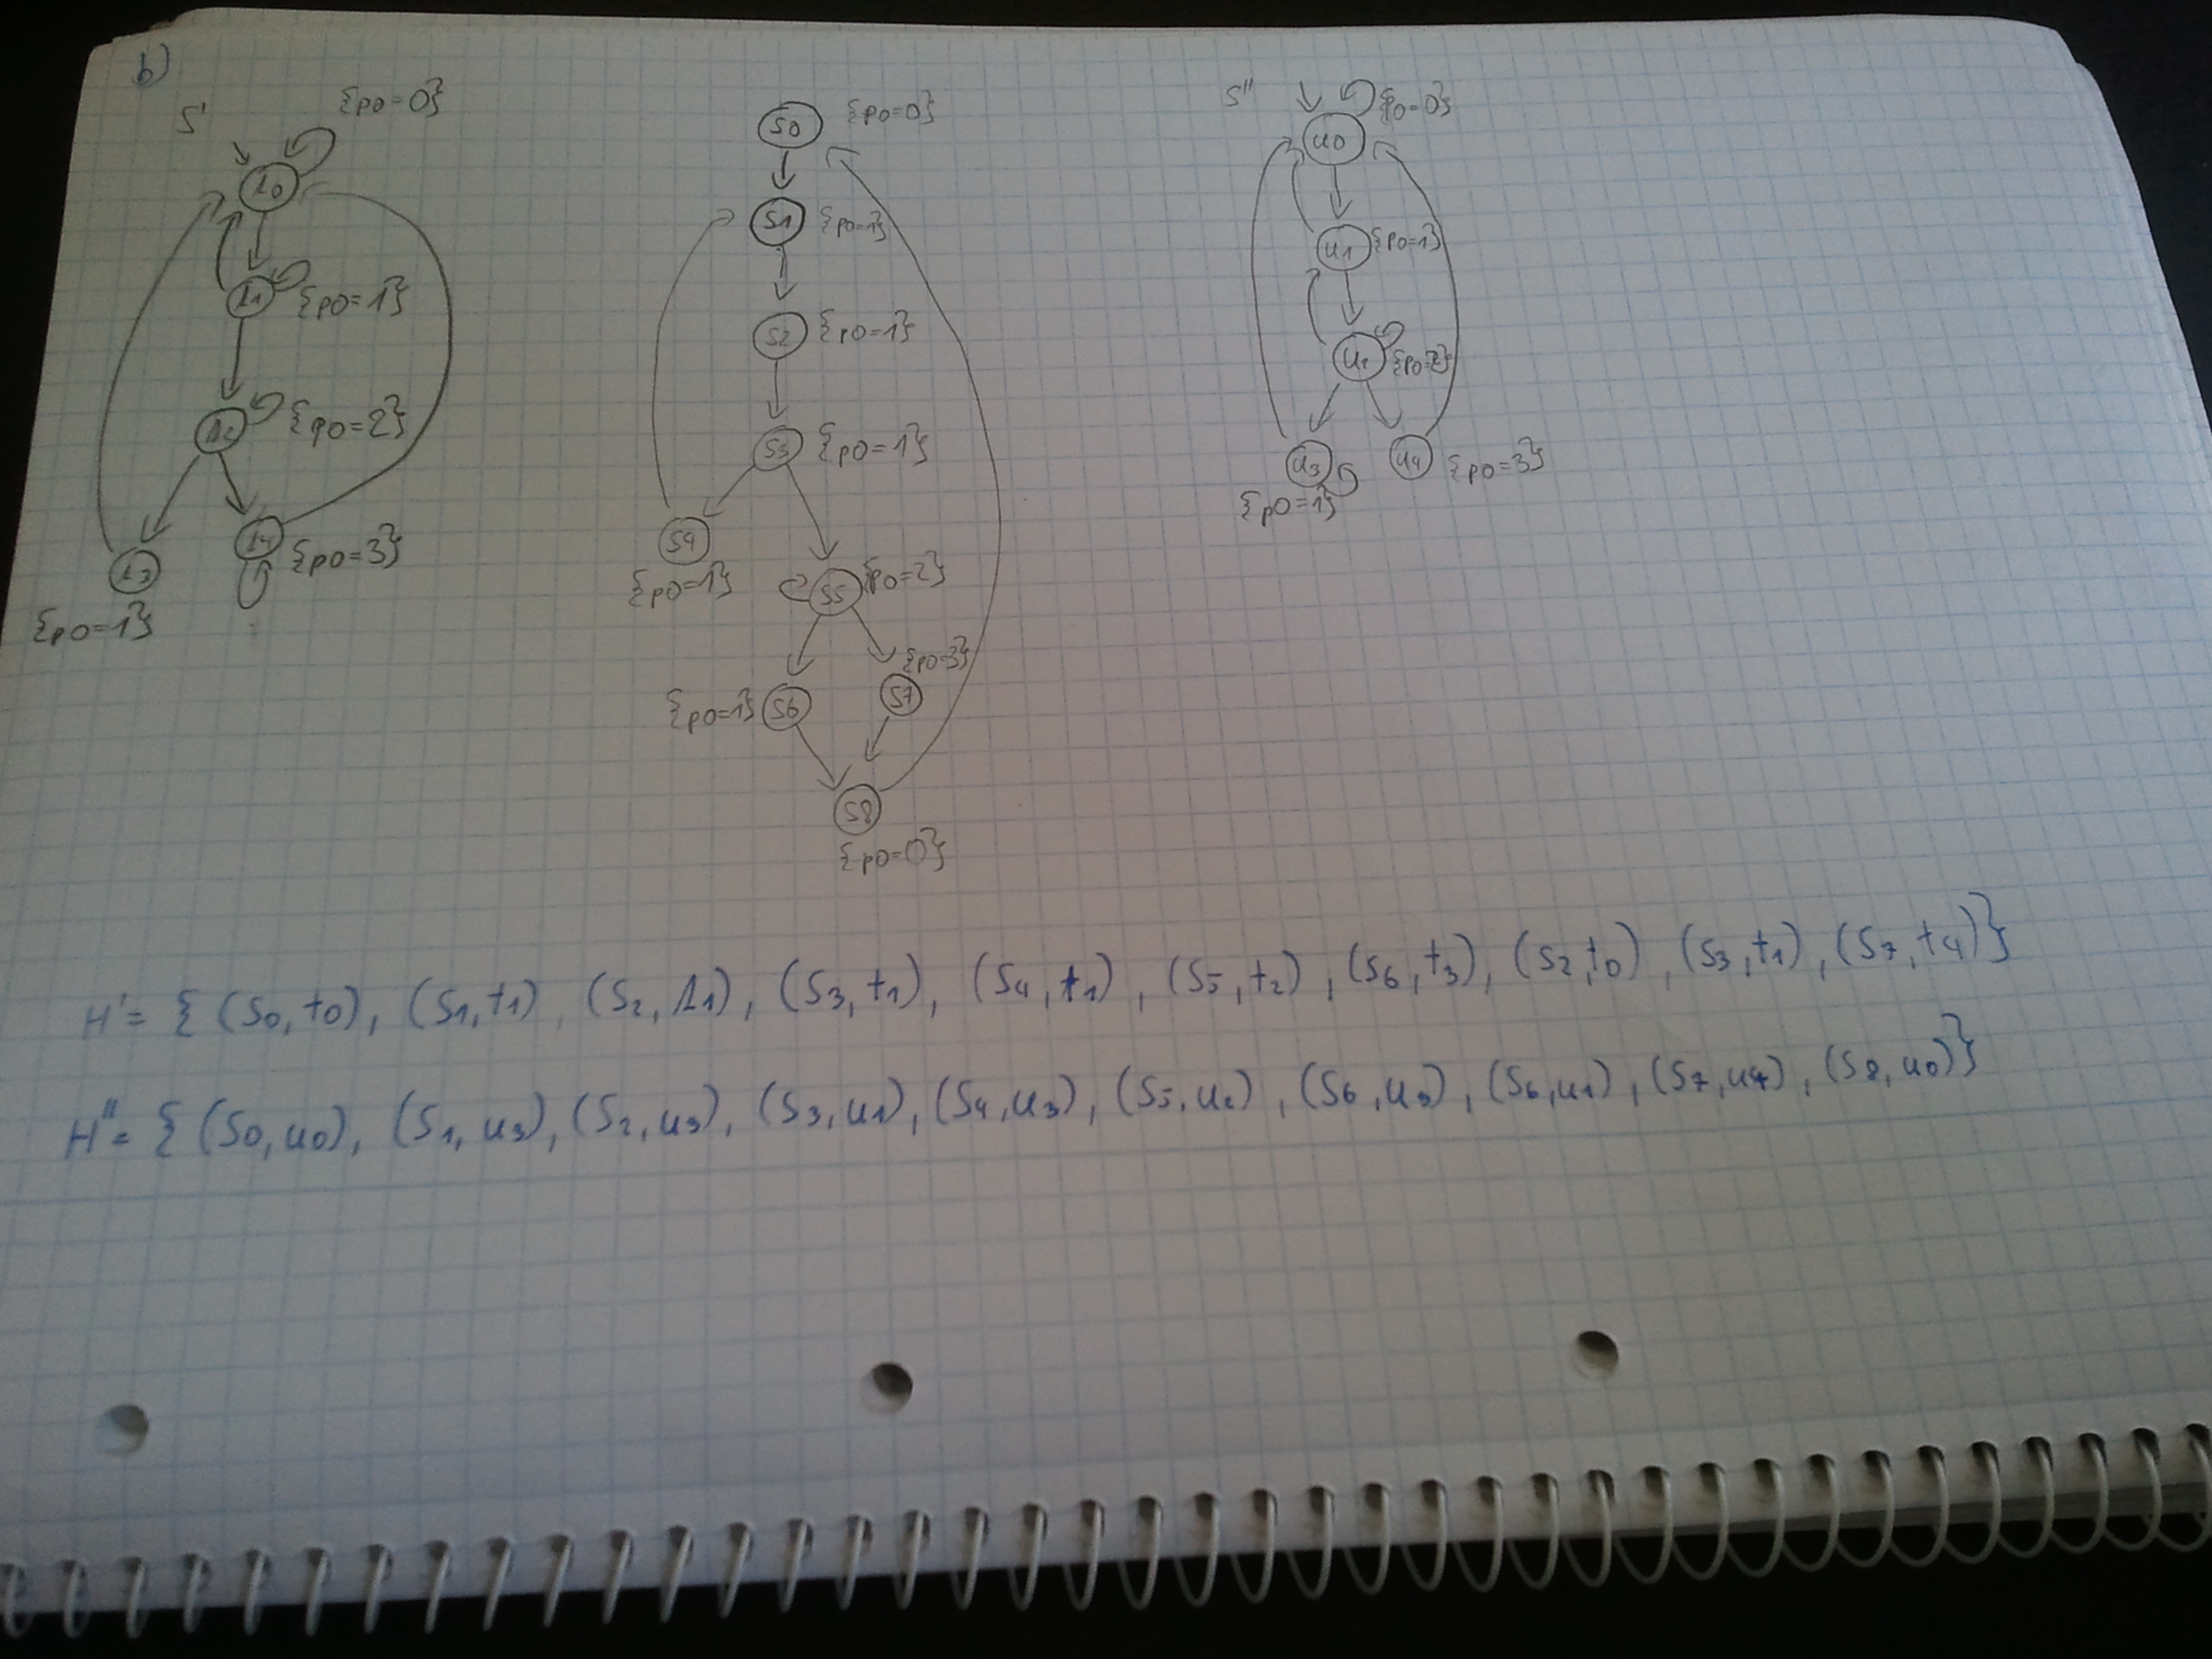 b)
S'
{p0=0}
t0
t1
{p0=1}
t2
{p0=2}
t3
{p0=1}
t4
{p0=3}
S0
{p0=0}
S1
{p0=1}
S2
{p0=1}
S3
{p0=1}
S4
{p0=1}
S5
{p0=2}
{p0=1}
S6
{p0=3}
S7
S8
{p0=0}
S''
{p0=0}
u0
u1
{p0=1}
u2
{p0=2}
u3
{p0=1}
u4
{p0=3}
H' = { (S0, t0), (S1, t1), (S2, t1), (S3, t1), (S4, t1), (S5, t2), (S6, t3), (S2, t0), (S3, t1), (S7, t4)}
H'' = { (S0, u0), (S1, u3), (S2, u3), (S3, u1), (S4, u3), (S5, u2), (S6, u3), (S6, u1), (S7, u4), (S8, u0)}